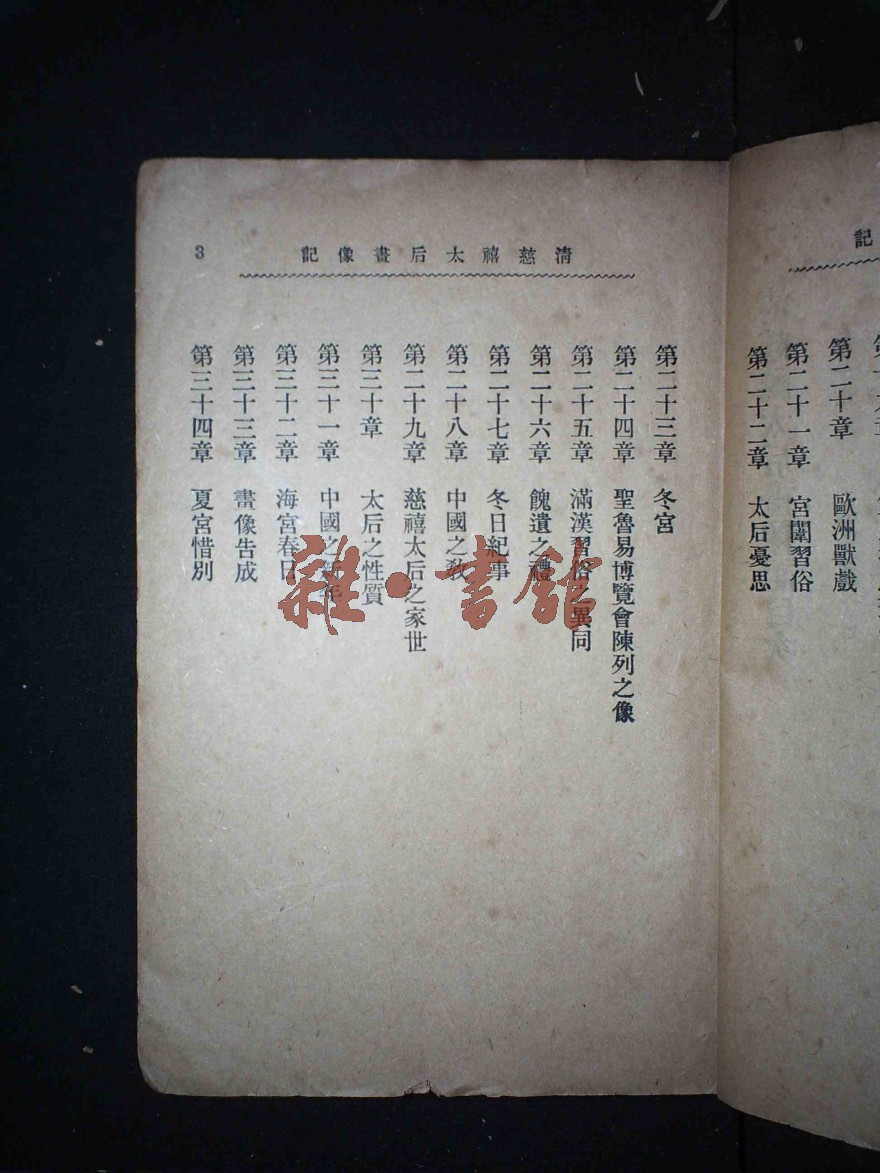 記
第二十章 歐洲獸戲
第二十一章 宮闈習俗
第二十二章 太后憂思
清慈禧太后畫像記
3
第二十三章 冬宮
第二十四章 聖魯易博覽會陳列之像
第二十五章 滿漢習俗之異同
第二十六章 餽遺之禮
第二十七章 冬日紀事
第二十八章 中國之教
第二十九章 慈禧太后之家世
第三十章 太后之性質
第三十一章 中國之新年
第三十二章 海宮春日
第三十三章 畫像告成
第三十四章 夏宮惜別
雜·書館